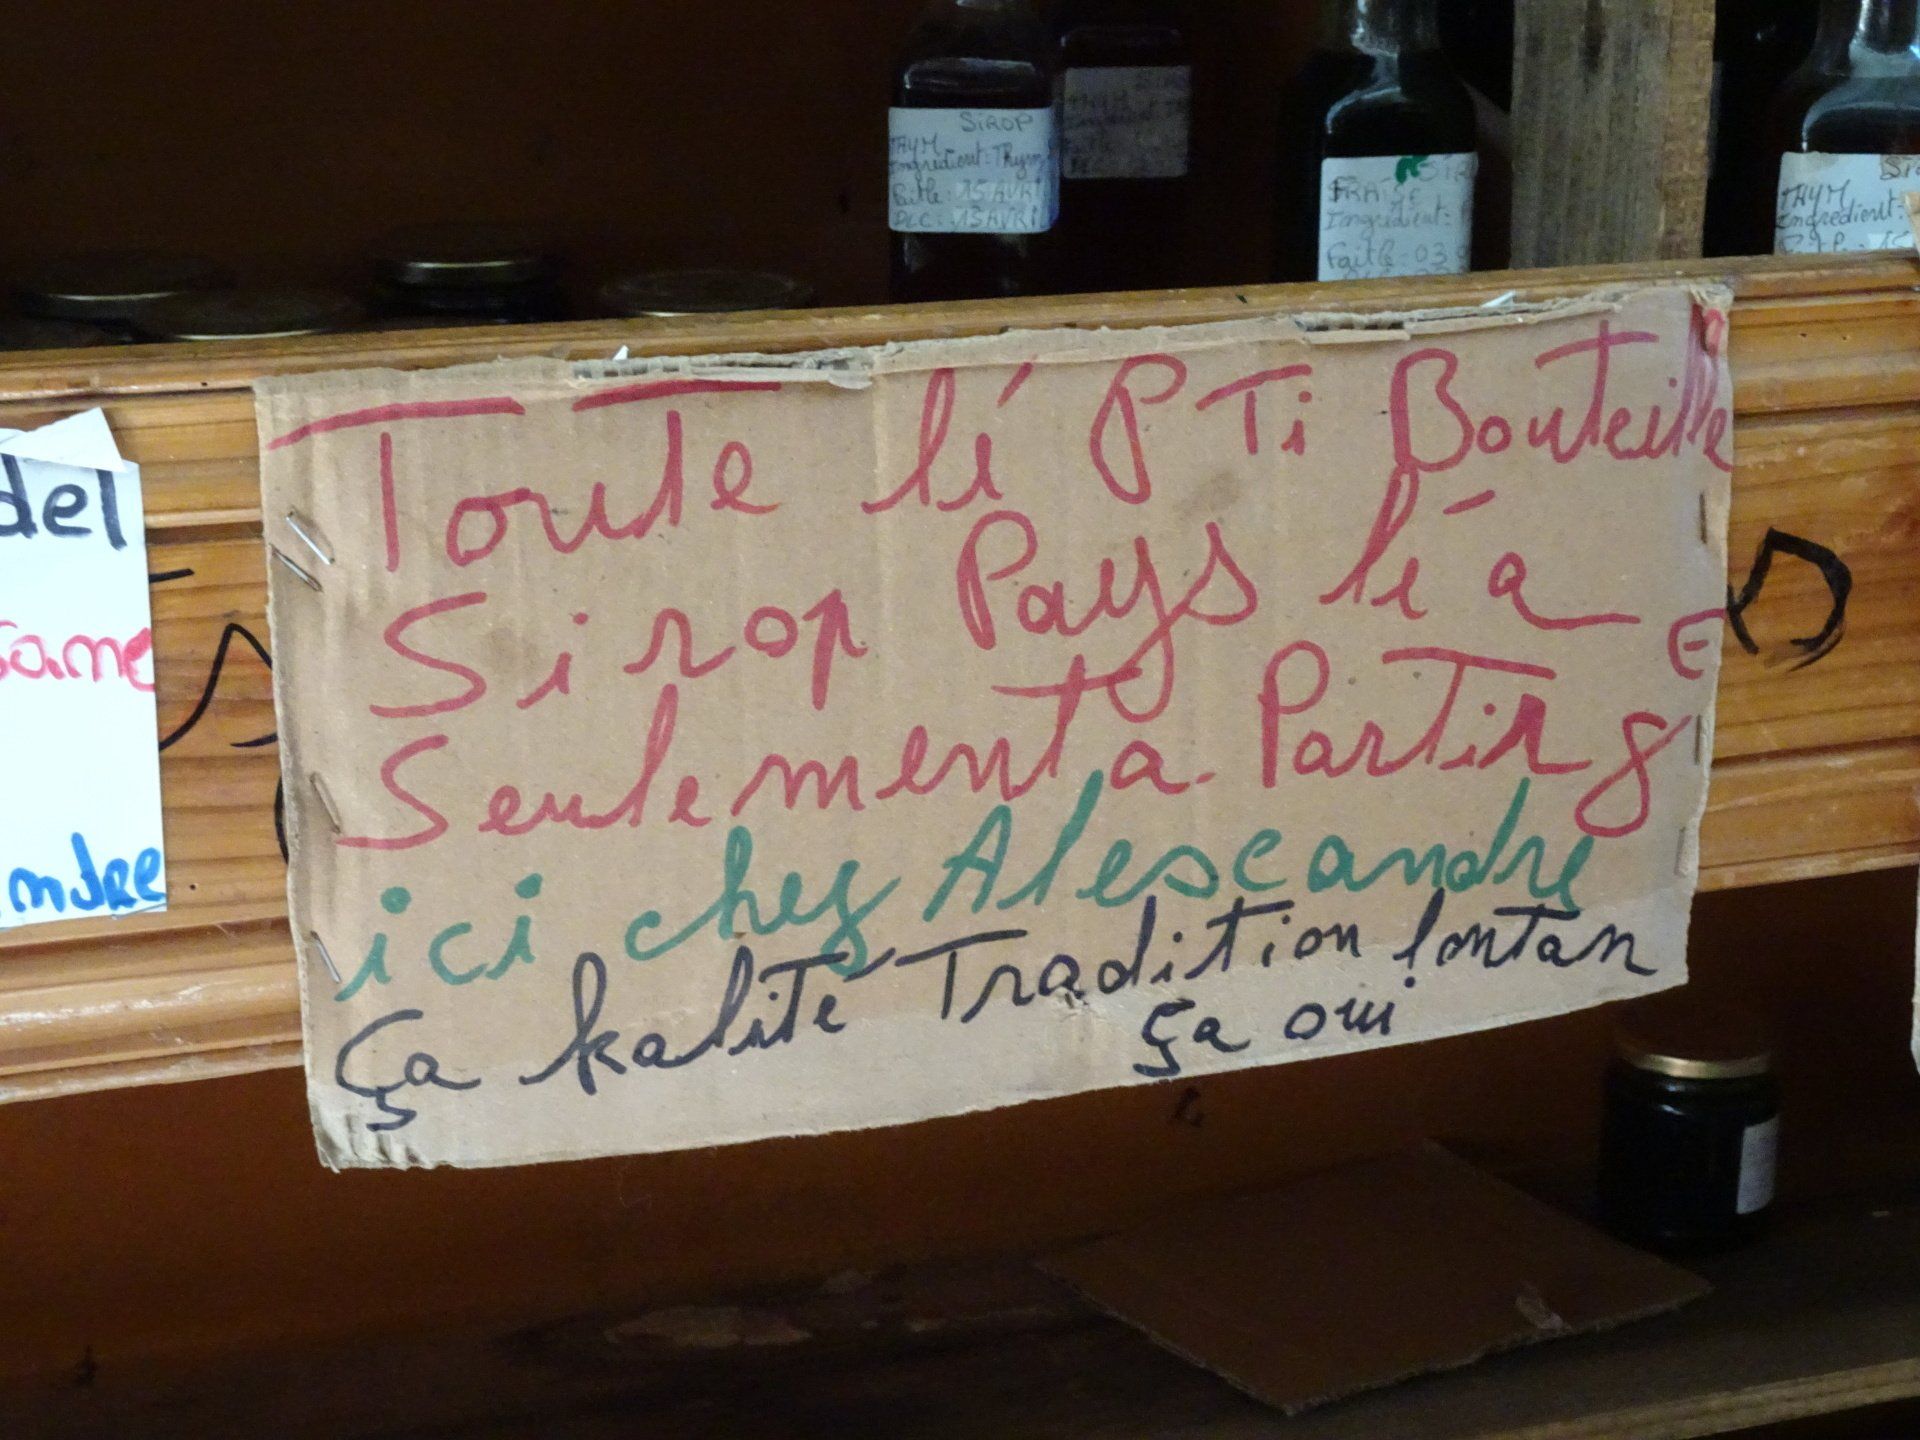 SiROP
THYM
Ingrédient: Thym
Faitle: 15 AVRI
DLC: 13 AVRIL
FRAISE
Ingrédient:
Faitle: 03
THYM
Ingrédient:
Toute lé P Ti Bouteille
Sirop Pays lé a
Seulement a Partir 8 E
ici chez Alescandre
Ça kalité Tradition lontan
ça oui
del